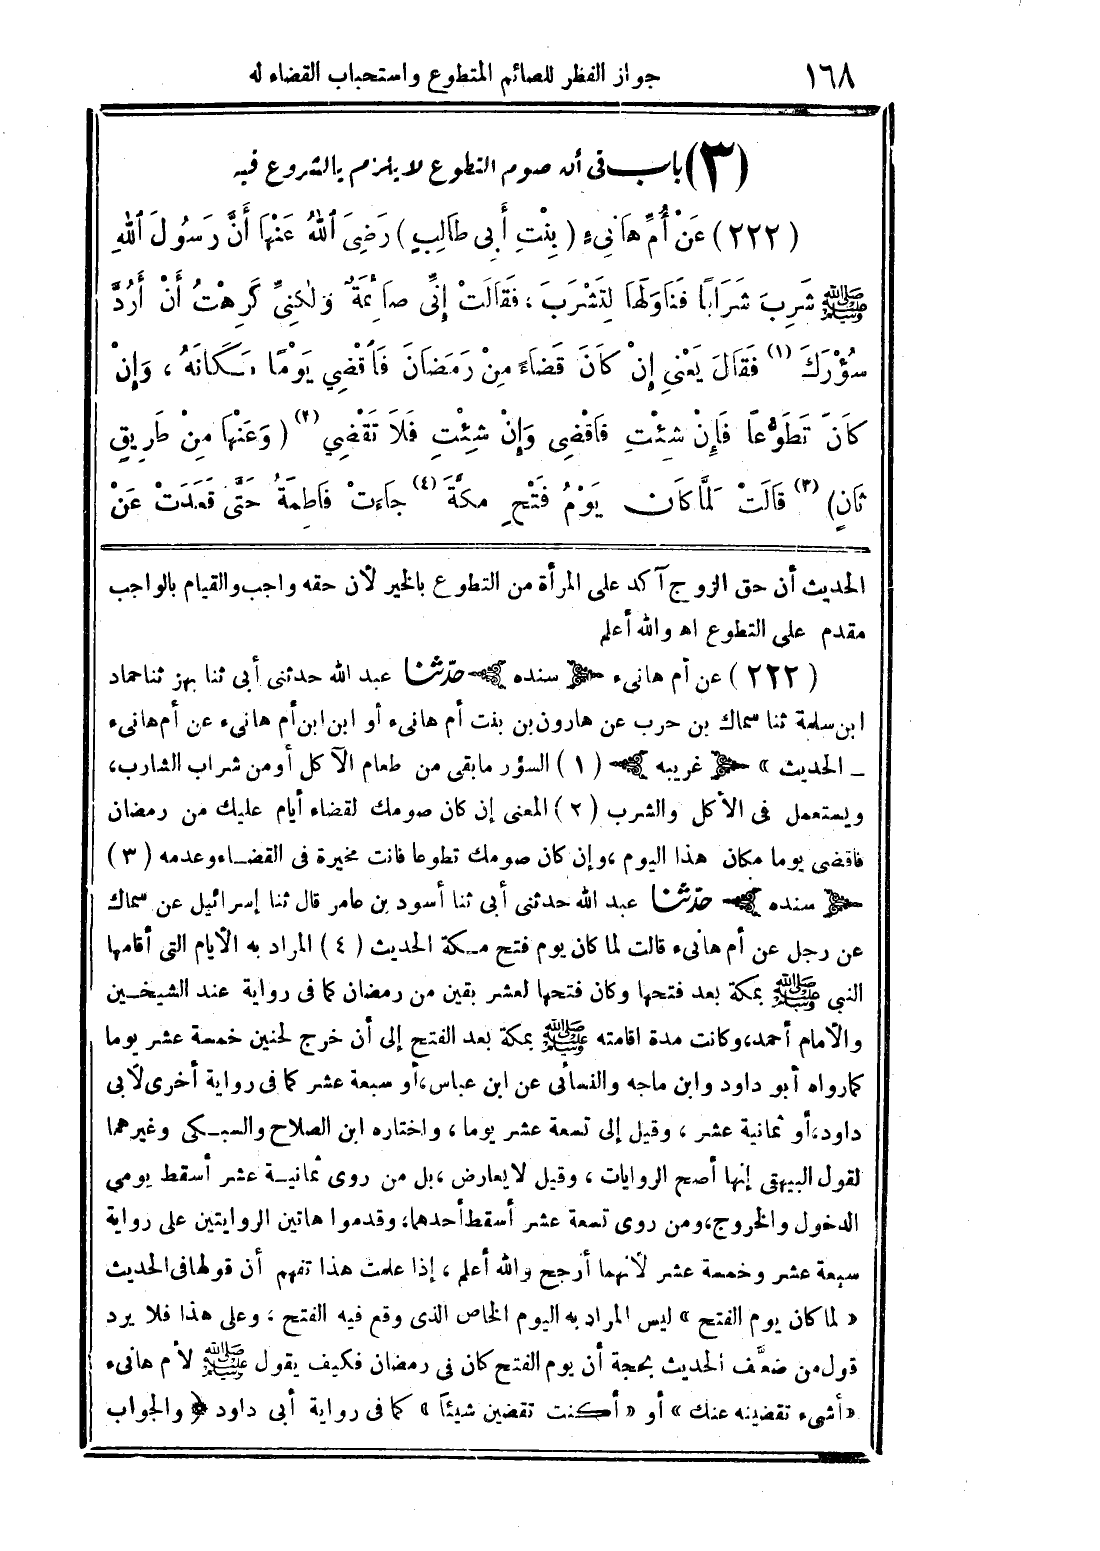 ١٦٨ جواز الفطر للصائم المتطوع واستحباب القضاء له
(٣) باب في أن صوم التطوع لا يلزم بالشروع فيه
(٢٢٢) عَنْ أُمِّ هَانِىءٍ (بِنْتِ أَبِى طَالِبٍ) رَضِىَ ٱللهُ عَنْهَا أَنَّ رَسُولَ ٱللهِ
ﷺ شَرِبَ شَرَابًا فَنَاوَلَهَا لِتَشْرَبَ، فَقَالَتْ إِنِّى صَائِمَةٌ وَلٰكِنِّى كَرِهْتُ أَنْ أَرُدَّ
سُؤْرَكَ (١) فَقَالَ يَعْنِى إِنْ كَانَ قَضَاءً مِنْ رَمَضَانَ فَاقْضِي يَوْمًا مَكَانَهُ، وَإِنْ
كَانَ تَطَوُّعًا فَإِنْ شِئْتِ فَاقْضِى وَإِنْ شِئْتِ فَلَا تَقْضِي (٢) (وَعَنْهَا مِنْ طَرِيقٍ
ثَانٍ) (٣) قَالَتْ لَمَّا كَانَ يَوْمُ فَتْحِ مَكَّةَ (٤) جَاءَتْ فَاطِمَةُ حَتَّى قَعَدَتْ عَنْ
الحديث أن حق الزوج آكد على المرأة من التطوع بالخير لأن حقه واجب والقيام بالواجب
مقدم على التطوع اهـ والله أعلم
(٢٢٢) عن أم هانىء ﴿ سنده ﴾ حدّثنا عبد الله حدثنى أبى ثنا بهز ثنا حماد
ابن سلمة ثنا سماك بن حرب عن هارون بن بنت أم هانىء أو ابن ابن أم هانىء عن أم هانىء
ـ الحديث » ﴿ غريبه ﴾ (١) السؤر ما بقى من طعام الآكل أو من شراب الشارب،
ويستعمل فى الأكل والشرب (٢) المعنى إن كان صومك لقضاء أيام عليك من رمضان
فاقضى يوما مكان هذا اليوم، وإن كان صومك تطوعا فانت مخيرة فى القضاء وعدمه (٣)
﴿ سنده ﴾ حدّثنا عبد الله حدثنى أبى ثنا أسود بن عامر قال ثنا إسرائيل عن سماك
عن رجل عن أم هانىء قالت لما كان يوم فتح مكة الحديث (٤) المراد به الأيام التى أقامها
النبى ﷺ بمكة بعد فتحها وكان فتحها لعشر بقين من رمضان كما فى رواية عند الشيخين
والأمام أحمد، وكانت مدة اقامته ﷺ بمكة بعد الفتح إلى أن خرج لحنين خمسة عشر يوما
كما رواه أبو داود وابن ماجه والنسائى عن ابن عباس، أو سبعة عشر كما فى رواية أخرى لأبى
داود، أو ثمانية عشر، وقيل إلى تسعة عشر يوما، واختاره ابن الصلاح والسبكى وغيرهما
لقول البيهقى إنها أصح الروايات، وقيل لا يعارض، بل من روى ثمانية عشر أسقط يومي
الدخول والخروج، ومن روى تسعة عشر أسقط أحدهما، وقدموا هاتين الروايتين على رواية
سبعة عشر وخمسة عشر لأنهما أرجح والله أعلم، إذا علمت هذا تفهم أن قولها فى الحديث
« لما كان يوم الفتح » ليس المراد به اليوم الخاص الذى وقع فيه الفتح، وعلى هذا فلا يرد
قول من ضعَّف الحديث بحجة أن يوم الفتح كان فى رمضان فكيف يقول ﷺ لأم هانىء
« أشىء تقضينه عنك » أو « أكنت تقضين شيئا » كما فى رواية أبى داود ﴿ والجواب